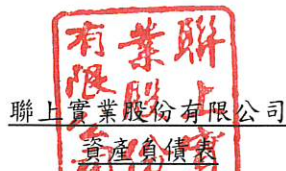 聯上實業股份有限公司
資產負債表